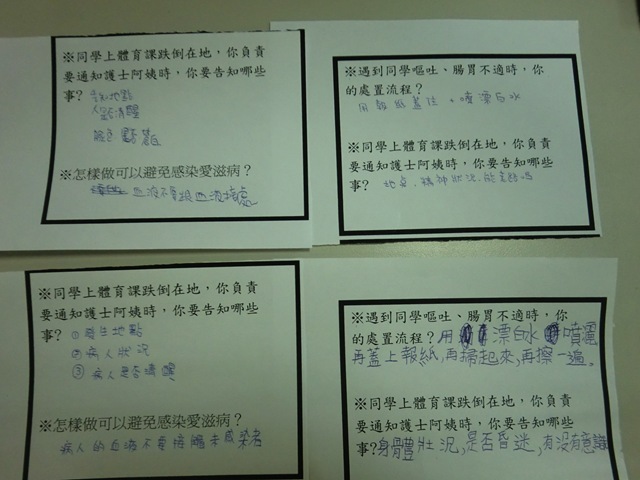 ※同學上體育課跌倒在地，你負責
要通知護士阿姨時，你要告知哪些
事？告知地點
清醒
臉色
※怎樣做可以避免感染愛滋病？
血液不要跟血液接處
※遇到同學嘔吐、腸胃不適時，你
的處置流程？
用報紙蓋住、噴漂白水
※同學上體育課跌倒在地，你負責
要通知護士阿姨時，你要告知哪些
事？ 地點、精神狀況、能
※同學上體育課跌倒在地，你負責
要通知護士阿姨時，你要告知哪些
事？①發生地點
②病人狀況
③病人是否清醒
※怎樣做可以避免感染愛滋病？
病人的血液不要接觸未感染者
※遇到同學嘔吐、腸胃不適時，你
的處置流程？用漂白水噴灑
再蓋上報紙,再掃起來,再擦一遍。
※同學上體育課跌倒在地，你負責
要通知護士阿姨時，你要告知哪些
事?身體壯況,是否昏迷,有沒有意識